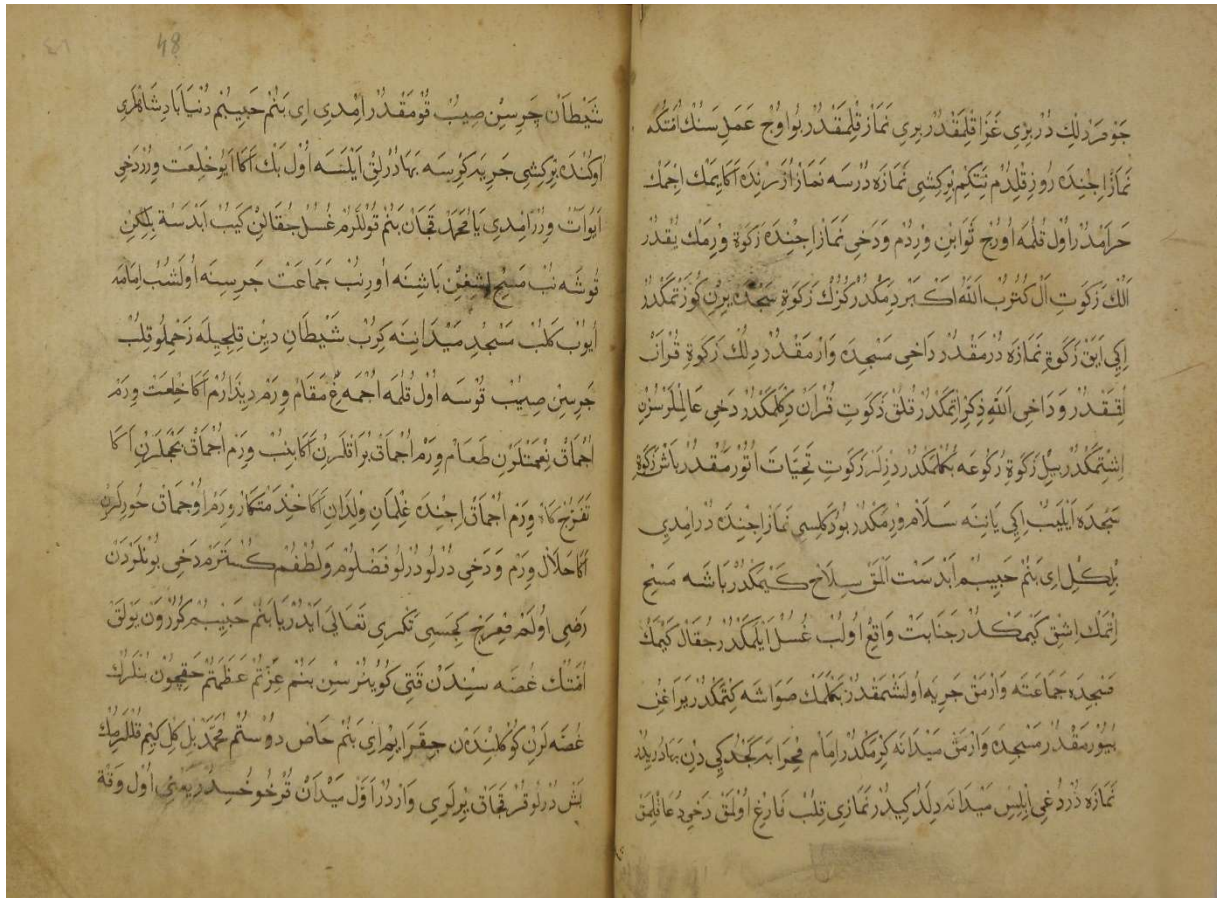 جَوْمَرْدلِكْ دُرْ بِرْى غَزَا قِلْمَقْدُرْ بِرِى نَمَازْ قِلْمَقْدُرْ بُو اوُجْ عَمَلِ سَنُكْ اُمَّتُكَه
نَمَازْ اِچِنْدَه رُوزِ قِلْدُمْ نِتَكِيمْ بِرْ كِشِى نَمَازَه دُرْسَه نَمَازْ اُزَرِنْدَه اَكَا يِمَكْ اِچْمَكْ
حَرَامْدُرْ اَوُلْ قُلُمَه اُورُجْ ثَوَابِنْ وِرْدُمْ وَدَخِى نَمَازْ اِچِنْدَه زَكٰوةْ وِرْمَكْ يُقْدُرْ
اَلُكْ زَكٰوتِ اَلْ كُتُرُبْ اَللّٰهُ اَكْبَرْ دِمَكْدُرْ كُزُكْ زَكٰوةِ سَجْدَه يِرِنْ كُوزَتْمَكْدُرْ
اِكِى اَيَقْ زَكٰوةِ نَمَازَه دُرْمَقْدُرْ دَاخِى مَسْجِدَه وَارْمَقْدُرْ دِلُكْ زَكٰوةِ قُرْاٰنْ
اُقُمَقْدُرْ وَدَاخِى اَللّٰهِ ذِكْرْ اِتْمَكْدُرْ قُلَقْ زَكٰوتِ قُرْاٰنْ دِكْلَمَكْدُرْ دَخِى عَالِمْلَرْ سُزِنْ
اِشِتْمَكْدُرْ بِيلْ زَكٰوةِ رُكُوعَه بُكُلْمَكْدُرْ دِزْلَرْ زَكٰوتِ تَحِيَّاتَ اُتُورْمَقْدُرْ بَاشْ زَكٰوةِ
سَجْدَه اَيْلَيُبْ اِكِى يَانِنَه سَلَامْ وِرْمَكْدُرْ بُو دُكَلِسِى نَمَازْ اِچِنْدَه دُرْ اِمْدِى
بِلْكِلْ اِى بَنُمْ حَبِيبُمْ اَبْدَسْتْ اَلْمَقْ سِلَاحْ كَيْمَكْدُرْ بَاشَه مَسِحْ
اِتْمَكْ اِشِقْ كَيْمَكْدُرْ جَنَابَتْ وَاقِعْ اُولُبْ غُسُلْ اَيْلَمَكْدُرْ جُقَالْ كَيْمَكْ
مَسْجِدَه جَمَاعَتَه وَارْمَقْ جَرِيَه اُولَشْمَقْدُرْ بَكْلَمَكْ صَوَاشَه كِتْمَكْدُرْ يَرَاغِنْ
بِيُورْمَقْدُرْ مَسْجِدَه وَارْمَقْ مَيْدَانَه كِرْمَكْدُرْ اِمَامْ مِحْرَابَه كَچْدُكِى دِنْ بَهَادُرِيدُرْ
نَمَازَه دُرْدُغِى اِبْلِيسْ مَيْدَانَه دِلَدُكِيدُرْ نَمَازِى قِلُبْ فَارِغْ اُولْمَقْ دَخِى دُعَا قِلْمَقْ
48
شَيْطَانْ چَرِسِنْ صِيُبْ قُومَقْدُرْ اِمْدِى اِى بَنُمْ حَبِيبُمْ دُنْيَا پَادِشَاهْلَرِى
اُوكُنْدَه بِرْ كِشِى جَرِيَه كِرِسَه بَهَادُرْلِقْ اَيْلَسَه اُولْ بَكْ اَكَا اَيُو خِلْعَتْ وِرُرْ دَخِى
اَيُو آتْ وِرُرْ اِمْدِى يَا مُحَمَّدْ قَچَانْ بَنُمْ قُولْلَرُمْ غُسُلْ جُقَالِنْ كَيُبْ اَبْدَسْتْ بِلِكِنْ
قُوشَه نُبْ مَسِحْ اِشِغِنْ بَاشِنَه اُورِنُبْ جَمَاعَتْ جَرِسِنَه اُولَشُبْ اِمَامَه
اُيُوبْ كَلُبْ مَسْجِدْ مَيْدَانِنَه كِرُبْ شَيْطَانِ دِينْ قِلِجِيلَه زَخْمِلُو قِلُبْ
جَرِسِنْ صِيُبْ قُوسَه اُولْ قُلُمَه اُچْمَه غِ مَقَامْ وِرَمْ دِيذَارُمْ اَكَا خِلْعَتْ وِرَمْ
اُچْمَاقْ نِعْمَتْلَرِنْ طَعَامْ وِرَمْ اُچْمَاقْ بُرَاقْلَرِنْ اَكَا بِنُبْ وِرَمْ اُچْمَاقْ بَغْچَلَرِنْ اَكَا
تَفَرُّجْ كَاهْ وِرَمْ اُچْمَاقْ اِچِنْدَه غِلْمَانِ وِلْدَانِ اَكَا خِذْمَتْكَارْ وِرَمْ اُوچْمَاقْ حُورِلَرِنْ
اَكَا حَلَالْ وِرَمْ وَدَخِى دُرْلُو دُرْلُو فَضْلُومْ وَلُطْفُمْ كُسْتَرَمْ دَخِى بُونْلَرْدَنْ
رَضِى اُولَمْ مِعْرَجْ كِجَسِى تَكْرِى تَعَالَى اَيْدُرْ يَا بَنُمْ حَبِيبُمْ كُرُرْوَنْ يَوْلَقْ
اُمَّتُكْ غُصَّه سِنْدَنْ قَتِى كُويُنُرْسِنْ بَنُمْ عِزَّتُمْ عَظَمَتُمْ حَقِيچُونْ بُنْلَرُكْ
غُصَّه لَرِنْ كُوكْلُكْدَنْ چِقَرَايِمْ اِى بَنُمْ خَاصْ دُوسْتُمْ مُحَمَّدْ بِلْ كِلْ كِيمْ قُلْلَرُمُكْ
بَشْ دُرْلُو قُرْقَجَاقْ يِرْلَرِى وَارْدُرْ اَوَّلْ مَيْدَانْ قُرْخُوخُسِيدُرْ يَعْنِى اُولْ وَقْتْ